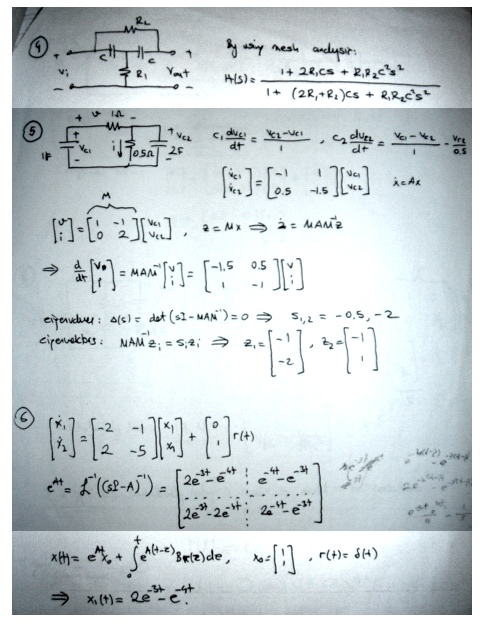 ④
R₂
+ C C +
Vi R₁ Vout
- -
By using mesh analysis:
H(s) = (1 + 2R₁Cs + R₁R₂C²s²) / (1 + (2R₁+R₂)Cs + R₁R₂C²s²)
⑤
+ v 1Ω -
1F + Vc1 - i↓ 0.5Ω + Vc2 2F
C₁ dvc1/dt = (vc2-vc1)/1 , C₂ dvc2/dt = (vc1 - vc2)/1 - vc2/0.5
[v̇c1; v̇c2] = [-1 1; 0.5 -1.5] [vc1; vc2] ẋ = Ax
M
[v; i] = [1 -1; 0 2] [vc1; vc2] , z = Mx ⇒ ż = MAM⁻¹z
⇒ d/dt [v; i] = MAM⁻¹ [v; i] = [-1,5 0.5; 1 -1] [v; i]
eigenvalues: Δ(s) = det (sI-MAM⁻¹) = 0 ⇒ s₁,₂ = -0.5, -2
eigenvectors: MAM⁻¹zᵢ = sᵢzᵢ ⇒ z₁ = [-1; -2] , z₂ = [-1; 1]
⑥
[ẋ₁; ẋ₂] = [-2 -1; 2 -5] [x₁; x₁] + [0; 1] r(t)
e^At = L⁻¹((sI-A)⁻¹) = [2e^-3t - e^-4t e^-4t - e^-3t; 2e^-3t - 2e^-4t 2e^-4t - e^-3t]
x(t) = e^At x₀ + ∫₀ᵗ e^A(t-z) B r(z) dz , x₀ = [1; 1] , r(t) = δ(t)
⇒ x₁(t) = 2e^-3t - e^-4t.